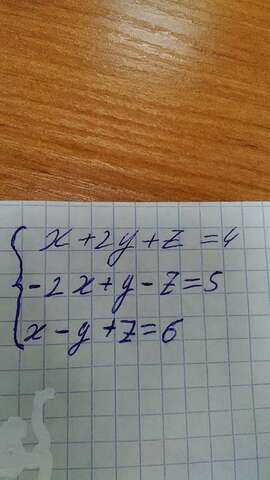 x + 2y + z = 4
- 2x + y - z = 5
x - y + z = 6